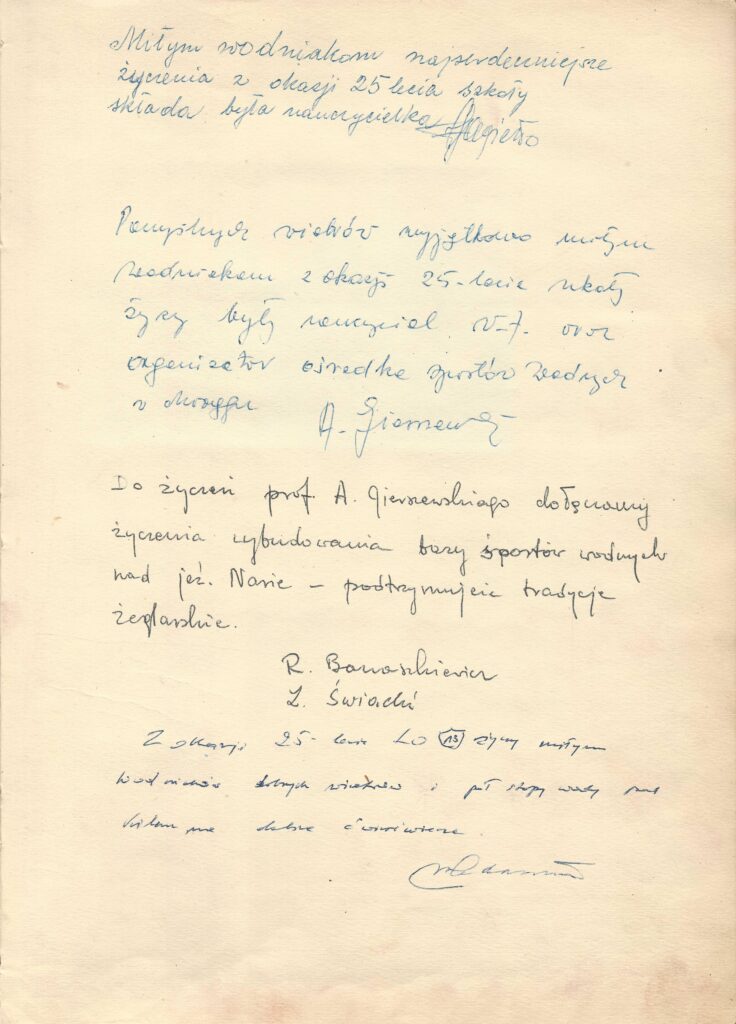 Miłym wodniakom najserdeczniejsze
życzenia z okazji 25 lecia szkoły
składa była nauczycielka Jagiełło
Pomyślnych wiatrów wyjątkowo miłym
wodniakom z okazji 25-lecia szkoły
życzy były nauczyciel W-F. oraz
organizator ośrodka sportów wodnych
w okręgu
A. Gierszewski
Do życzeń prof. A. Gierszewskiego dołączamy
życzenia wybudowania bazy sportów wodnych
nad jez. Narie – podtrzymujcie tradycje
żeglarskie.
R. Banaszkiewicz
Z. Świacki
Z okazji 25-lecia LO 13 życzę miłym
wodniakom dobrych wiatrów i pół stopy wody pod
kilem na